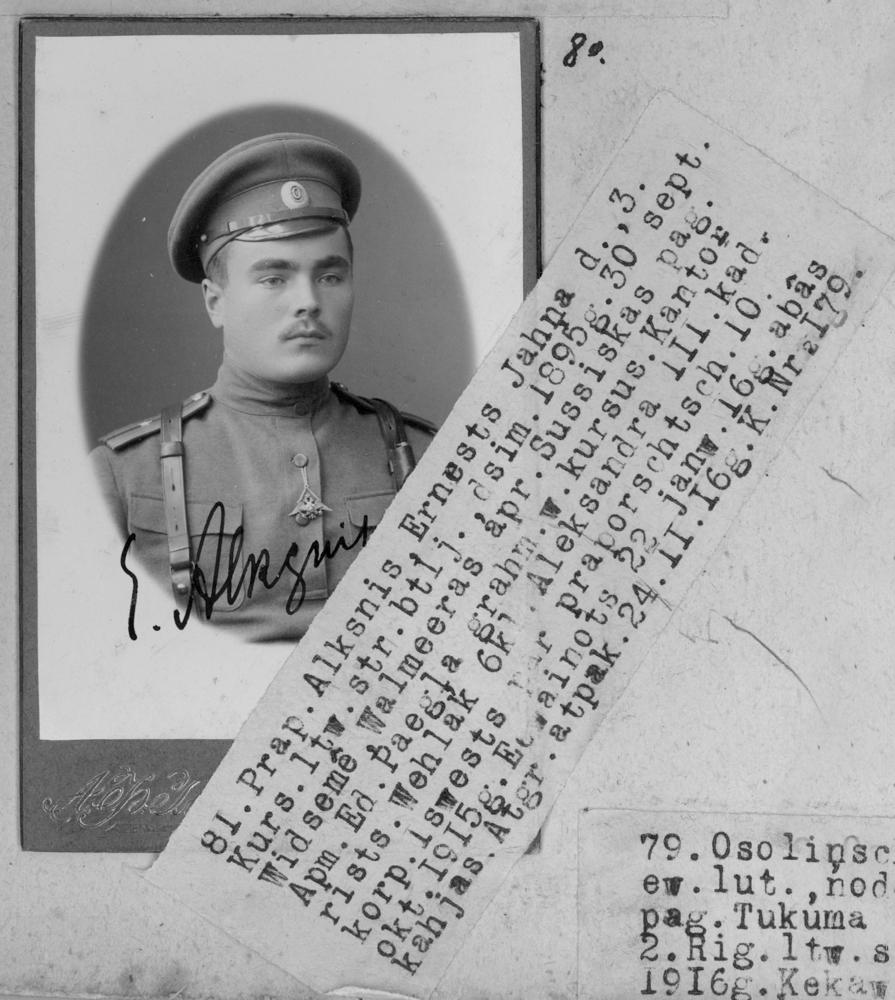 80.
E. Alksnis
81.Prap. Alksnis, Ernests Jahņa d.,3.
Kurs.ltw.str.btlj.,dsim.1895g.30 sept.
Widsemē Walmeeras apr.Sussiskas pag.
Apm.Ed.Paegļa grahm.w.kursus.Kantor
rists.Wehlak 6kl.Aleksandra III.kad.
korp.iswests par praborschtsch.10.
okt.1915g.Eewainots 22 janw.16g.abâs
kahjas.Atgr.atpak.24.II.I6g.K.Nr.I79.
79.Osoliņsc
ew.lut.,nod
pag.Tukuma
2.Rig.ltw.s
1916g.Kekaw